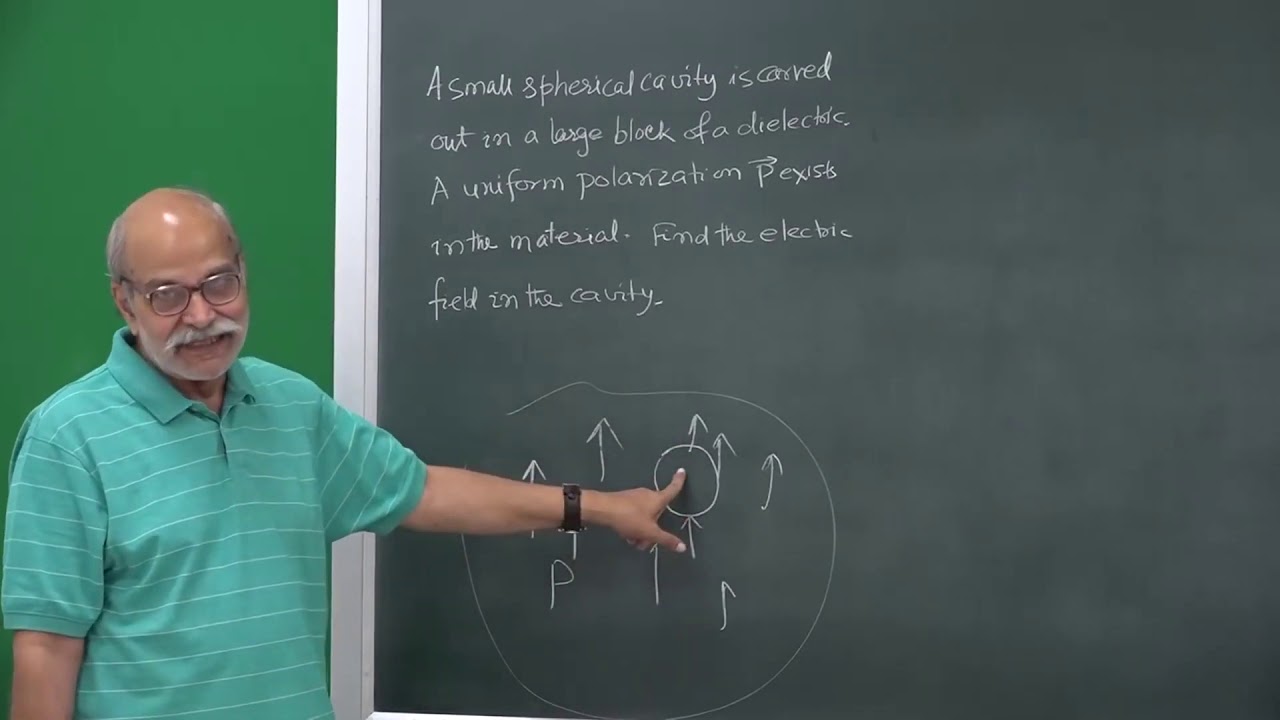 A small spherical cavity is carved
out in a large block of a dielectric.
A uniform polarization P⃗ exists
in the material. Find the electric
field in the cavity.
P